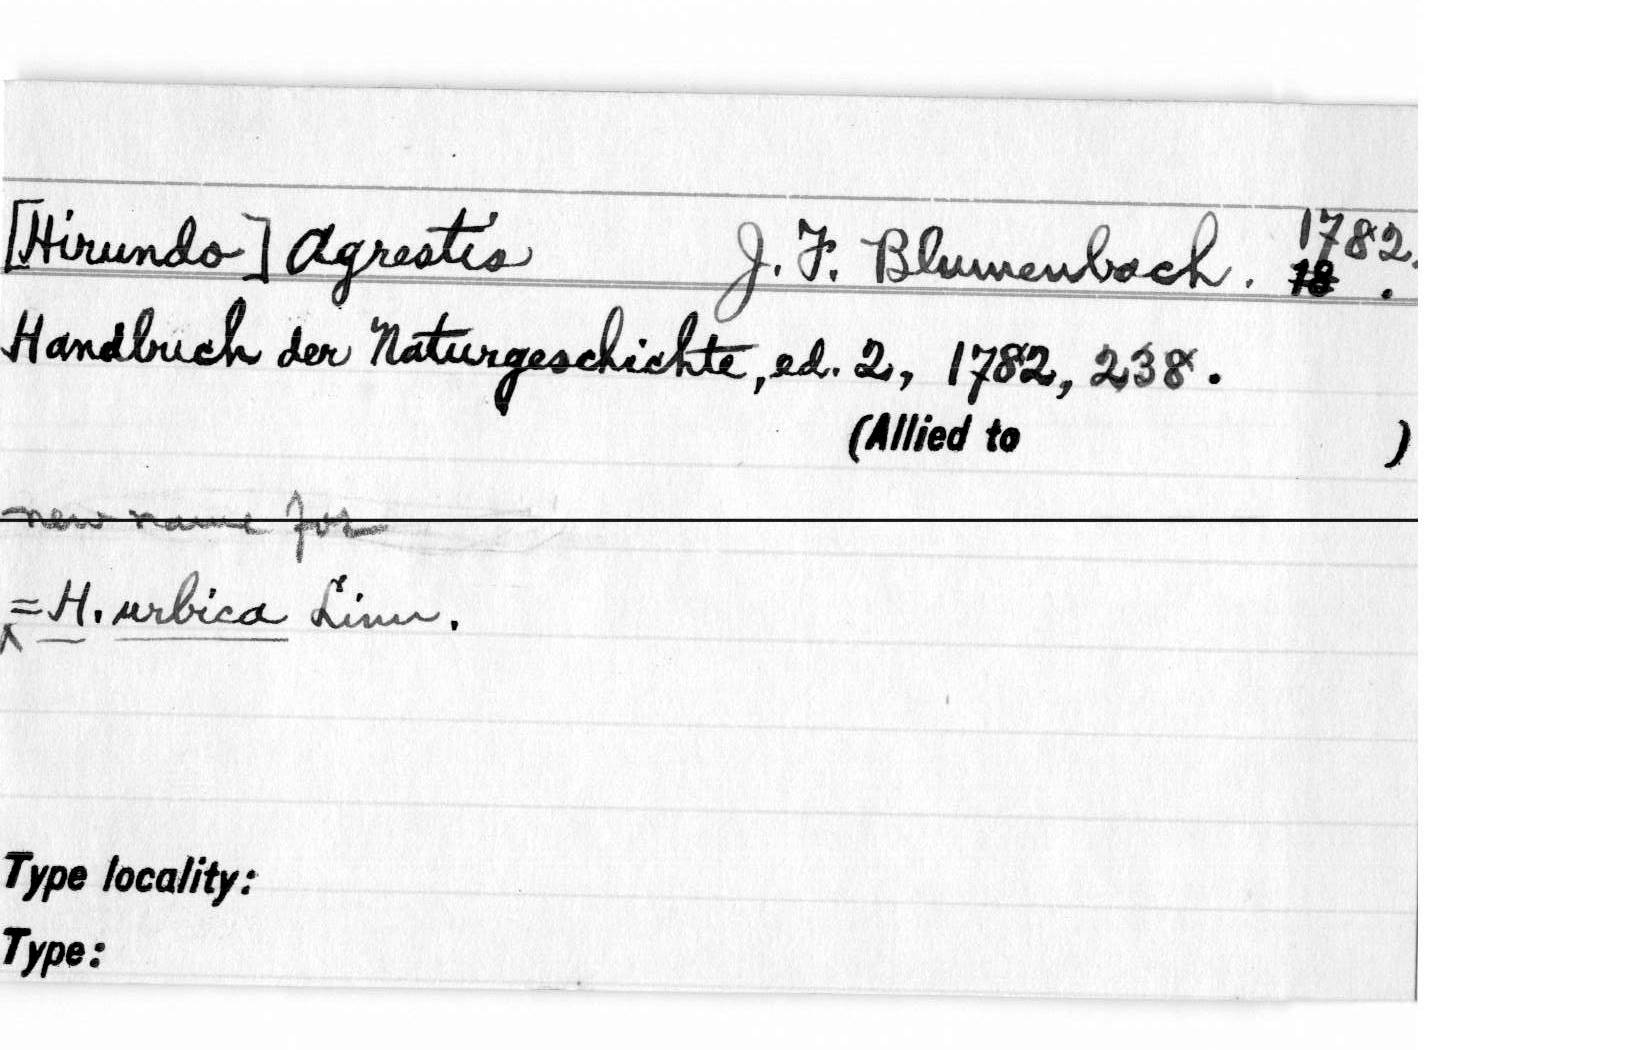 [Hirundo] Agrestis J. F. Blumenbach. 1782.
18 .
Handbuch der Naturgeschichte, ed. 2, 1782, 238.
(Allied to )
new name for
= H. urbica Linn.
Type locality:
Type: